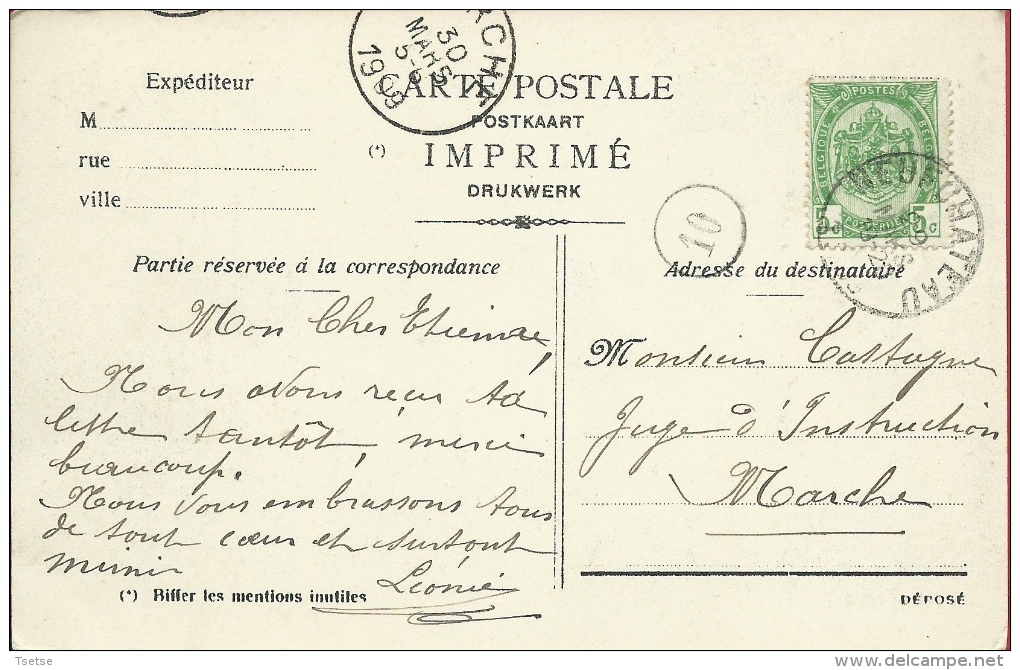 Expéditeur
M
rue
ville
MARCHE
30
MARS
5-6
1909
CARTE POSTALE
POSTKAART
(*) IMPRIMÉ
DRUKWERK
10
POSTES
BELGIQUE
5c 5c
NEUFCHATEAU
30
Partie réservée à la correspondance
Adresse du destinataire
Mon Cher Etienne,
Nous avons reçu ta
lettre tantôt, merci
beaucoup.
Nous vous embrassons tous
de tout cœur et surtout
mimi
Léonie
Monsieur Castagne
Juge d'Instruction
Marche
(*) Biffer les mentions inutiles
DÉPOSÉ
Tsetse
delcampe.net